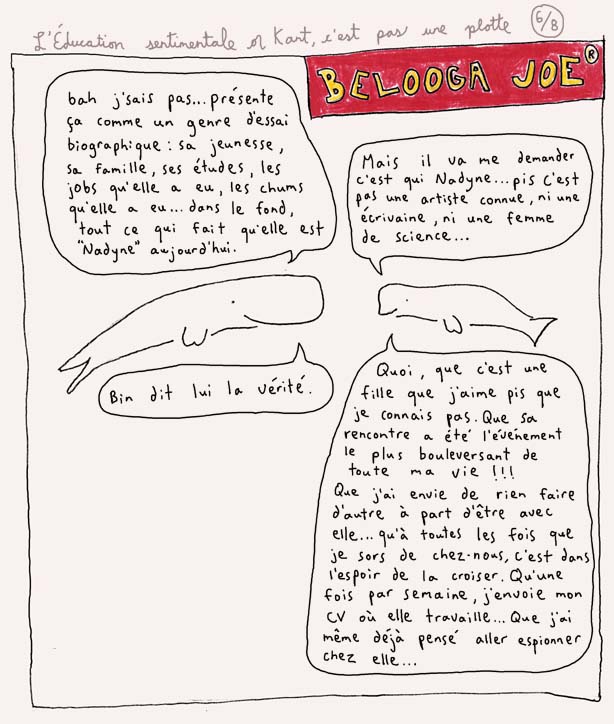 L'Éducation sentimentale of Kant, c'est pas une plotte 6/8
BELOOGA JOE ®
bah j'sais pas... présente
ça comme un genre d'essai
biographique : sa jeunesse,
sa famille, ses études, les
jobs qu'elle a eu, les chums
qu'elle a eu... dans le fond,
tout ce qui fait qu'elle est
"Nadyne" aujourd'hui.
Mais il va me demander
c'est qui Nadyne... pis c'est
pas une artiste connue, ni une
écrivaine, ni une femme
de science...
Bin dit lui la vérité.
Quoi, que c'est une
fille que j'aime pis que
je connais pas. Que sa
rencontre a été l'événement
le plus bouleversant de
toute ma vie !!!
Que j'ai envie de rien faire
d'autre à part d'être avec
elle... qu'à toutes les fois que
je sors de chez-nous, c'est dans
l'espoir de la croiser. Qu'une
fois par semaine, j'envoie mon
CV où elle travaille... Que j'ai
même déjà pensé aller espionner
chez elle...